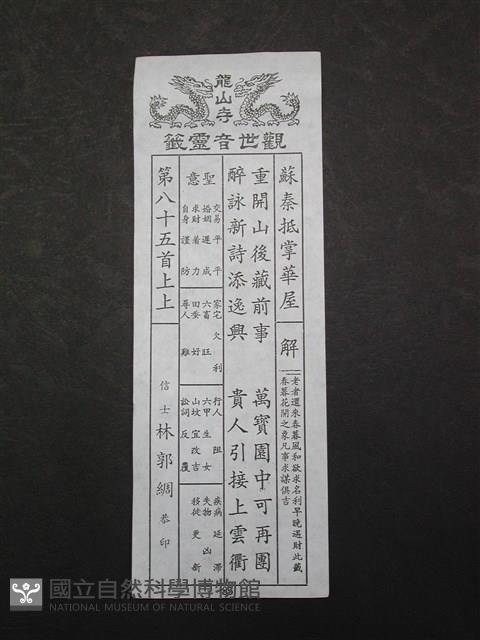 龍山寺
觀世音靈籤
蘇秦抵掌華屋
解
老者還來春暮風和欲求名利早晚遇財此籤
春暮花開之象凡事求謀俱吉
重開山後藏前事 萬寶園中可再團
醉詠新詩添逸興 貴人引接上雲衢
聖意
交易 平平
婚姻 遲成
求財 着力
自身 謹防
家宅 欠利
六畜 旺
田蚕 好
尋人 難
行人 阻
六甲 生女
山坟 宜改吉
訟詞 反覆
疾病 延滯
失物 凶
移徒 更新
第八十五首上上
信士 林郭綢 恭印
國立自然科學博物館
NATIONAL MUSEUM OF NATURAL SCIENCE